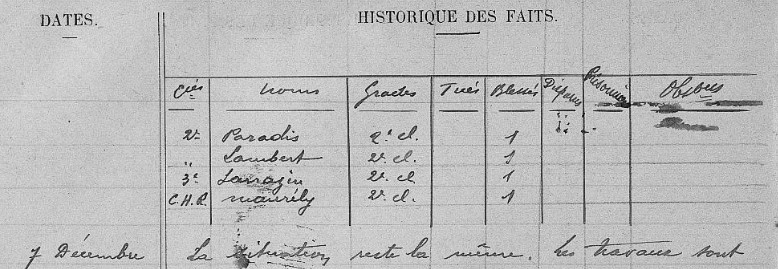 DATES. HISTORIQUE DES FAITS.
Cies Noms Grades Tués Blessés Disparus Prisonniers Obsons
2e Paradis 2e cl. 1
" Lambert 2e cl. 1
3e Sarrazin 2e cl 1
C.H.R. 2e cl. 1
7 Décembre La situation reste la même. Les travaux sont